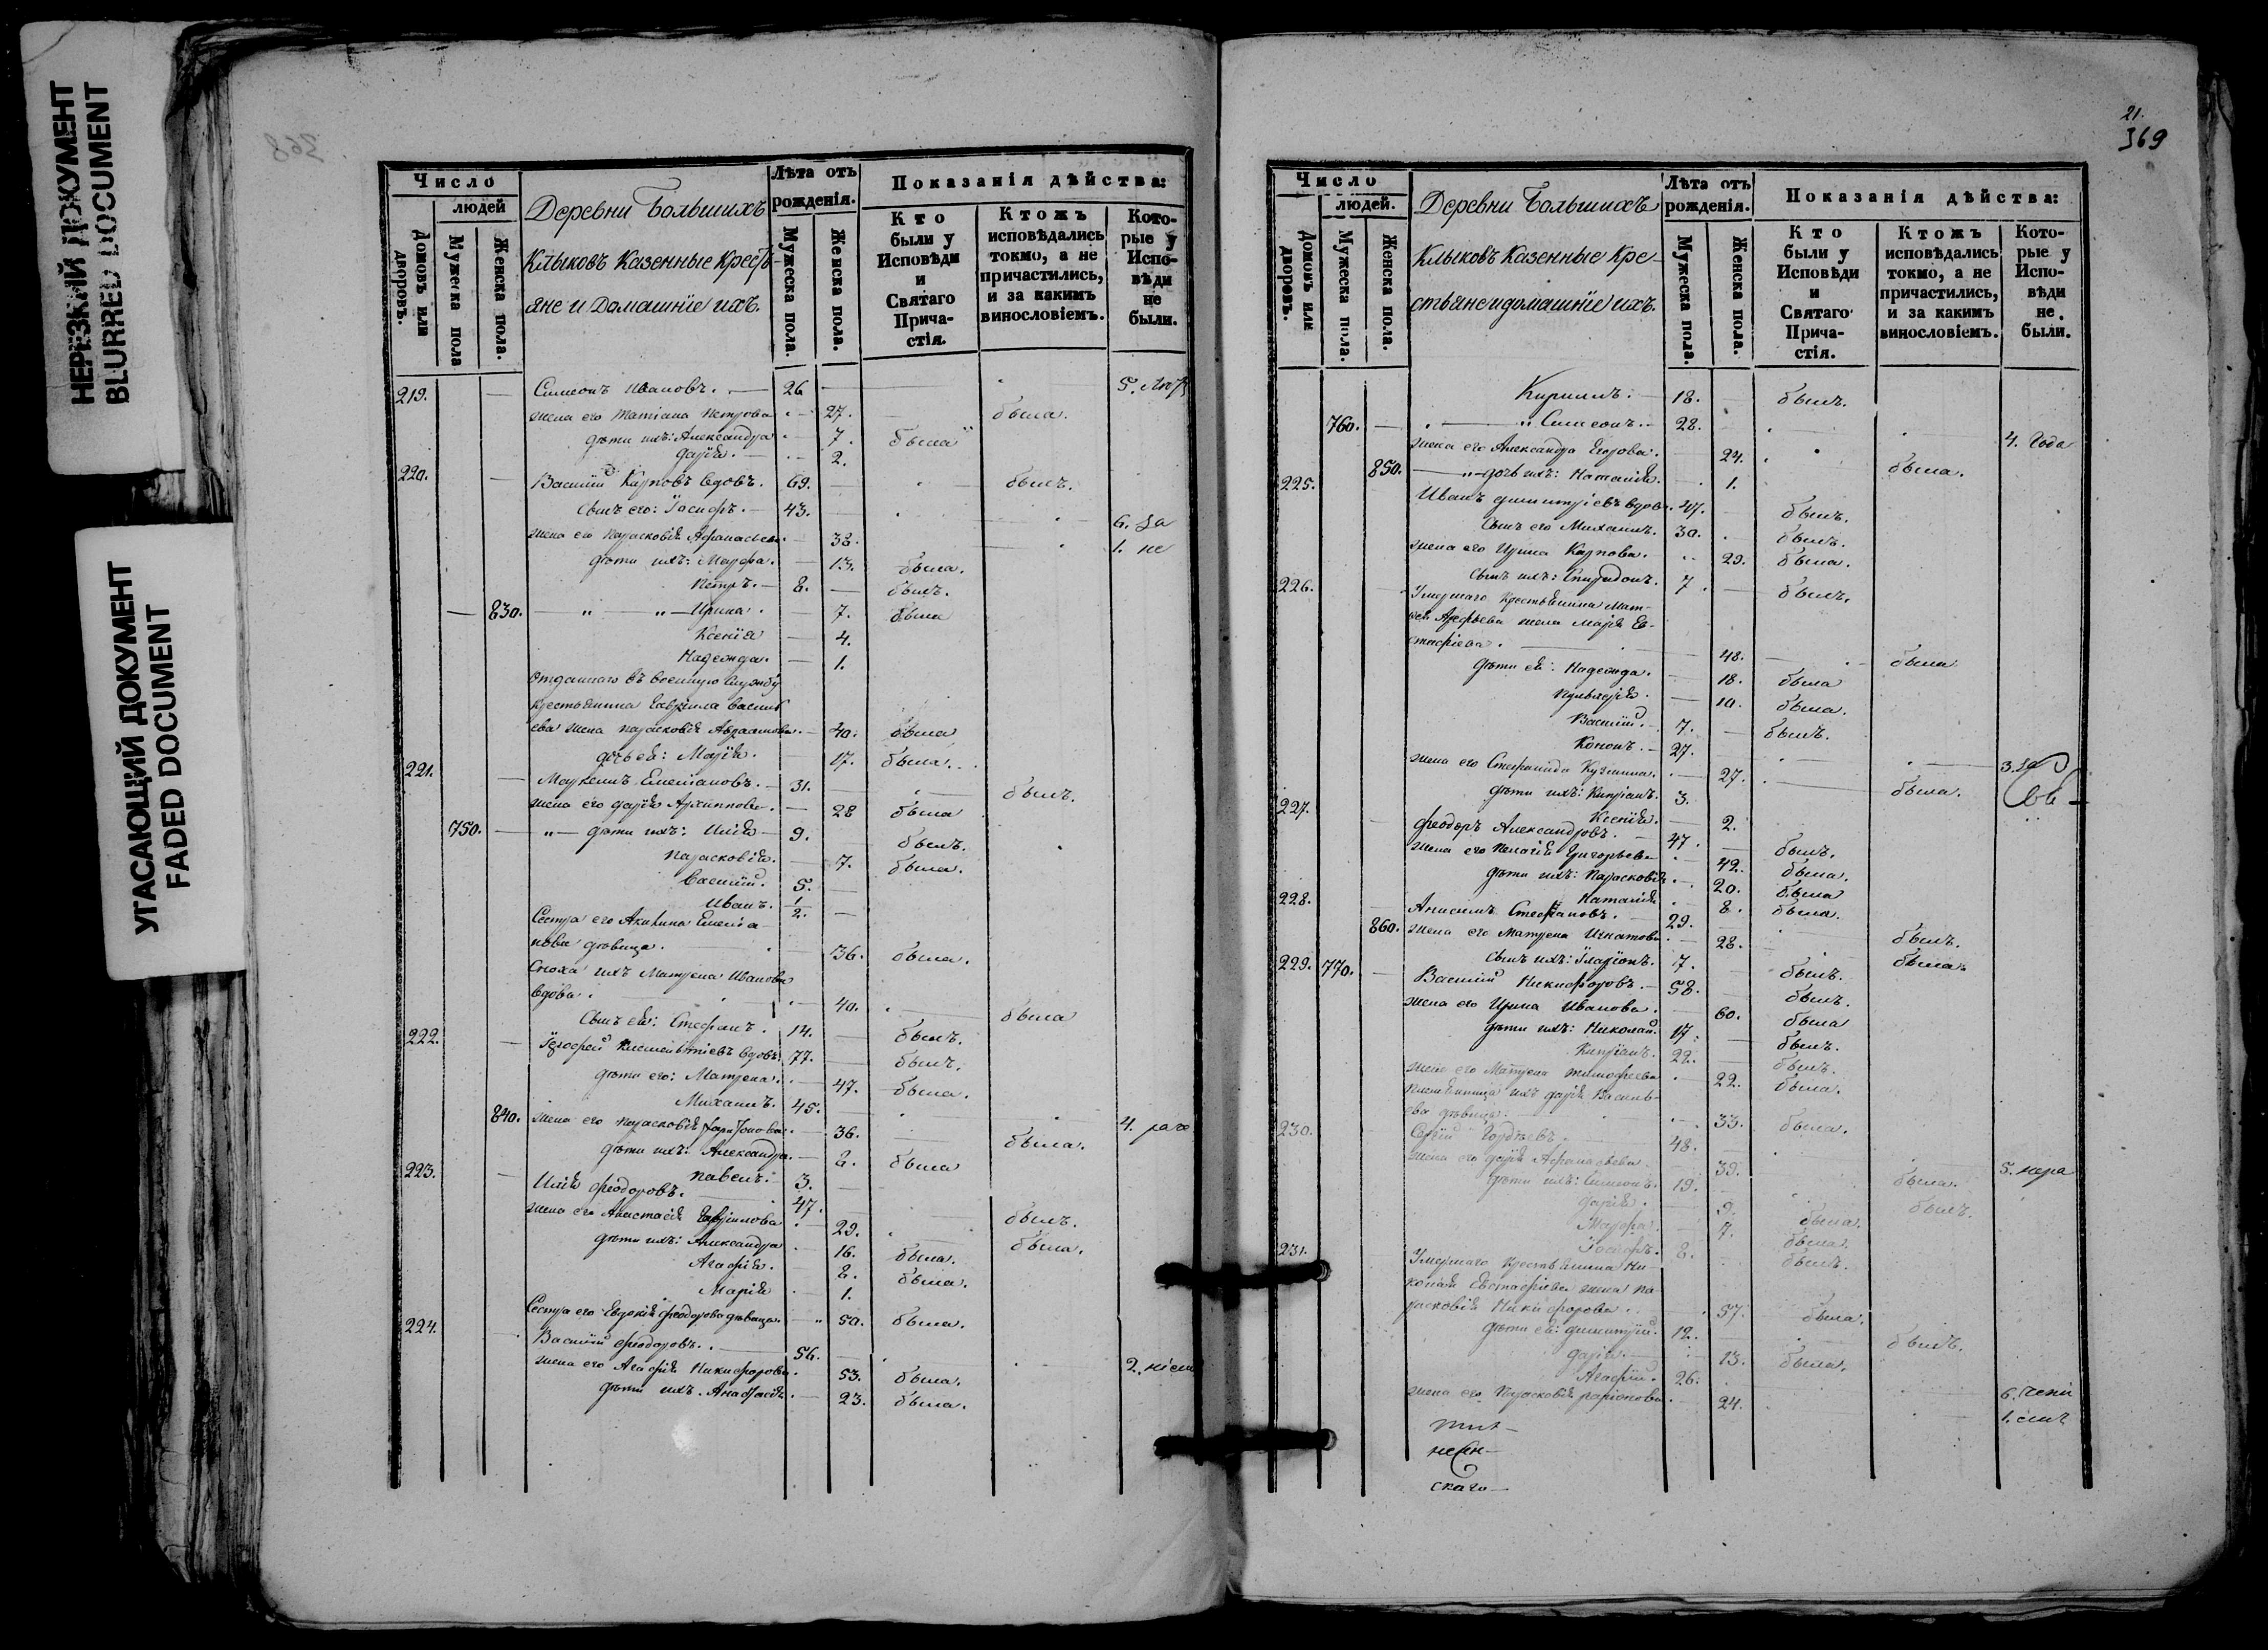 НЕРЕЗКИЙ ДОКУМЕНТ
BLURRED DOCUMENT
УГАСАЮЩИЙ ДОКУМЕНТ
FADED DOCUMENT
368
Число
людей
Домовъ или дворовъ.
Мужеска пола
Женска пола.
Деревни Большихъ
Клыковъ Казенные Кресть-
яне и Домашніе ихъ.
Лѣта отъ рожденія.
Мужеска пола.
Женска пола.
Показанія дѣйства:
Кто были у Исповѣди и Святаго Прича-стія.
Ктожъ исповѣдались токмо, а не причастились, и за какимъ винословіемъ.
Кото-рые у Испо-вѣди не были.
219. Симеонъ Ивановъ. 26 5.
жена его Татіана Петрова 27. была.
дѣти ихъ: Александра 7. была
Дарія. 2.
220. Василій Карповъ вдовъ. 69. былъ.
Сынъ его: Іосифъ. 43. 6. за
жена его Парасковія Афанасьева 38. 1. не
дѣти ихъ: Марфа. 13. была.
Петръ. 8. былъ.
830. Ирина. 7. была
Ксенія 4.
Надежда. 1.
Отданнаго въ военную службу
крестьянина Гавріила Василь
ева жена Парасковія Авраамова. 40. была
дочь ея: Марія. 17. была.
221. Маркеллъ Емеліановъ. 31. былъ.
жена его Дарія Архиппова. 28 была
750. дѣти ихъ: Илія 9. былъ.
Парасковія. 7. была.
Василій. 5.
Иванъ. 1/2.
Сестра его Акилина Емеліа-
нова дѣвица. 36. была.
Сноха ихъ Матрена Иванова
вдова. 40. была
Сынъ ея: Стефанъ. 14. былъ.
222. вдовъ. 77. былъ.
дѣти его: Матрена. 47. была.
Михаилъ. 45. 4.
840. жена его Парасковія Харитонова. 36. была.
дѣти ихъ: Александра. 8. была
Павелъ. 3.
223. Илія Феодоровъ. 47. былъ.
жена его Анастасія Гавриилова 29. была.
дѣти ихъ: Александра 16. была.
Агафія. 8. была.
Марія 1.
Сестра его Евдокія Феодорова дѣвица. 50. была.
224. Василій Феодоровъ. 56. 2.
жена его Агафія Никифорова. 53. была.
дѣти ихъ: Анастасія. 23. была.
21.
369
Число
людей.
Домовъ или дворовъ.
Мужеска пола.
Женска пола.
Деревни Большихъ
Клыковъ Казенные Кре-
стьяне и домашніе ихъ.
Лѣта отъ рожденія.
Мужеска пола.
Женска пола.
Показанія дѣйства:
Кто были у Исповѣди и Святаго Прича-стія.
Ктожъ исповѣдались токмо, а не причастились, и за какимъ винословіемъ.
Кото-рые у Испо-вѣди не были.
Кириллъ. 18. былъ.
760. Симеонъ. 28. 4. года
жена его Александра Егорова. 24. была.
850. дочь ихъ: Наталія. 1.
225. Иванъ Димитріевъ вдовъ. 47. былъ.
Сынъ его Михаилъ. 30. былъ.
жена его Ирина Карпова. 29. была.
Сынъ ихъ: Спиридонъ. 7. былъ.
226. Умершаго Крестьянина Мат-
вея Арефьева жена Марія Ев-
стафіева. 48. была
дѣти ея: Надежда. 18. была
Пульхерія. 10. была.
Василій. 7. былъ.
Кононъ. 27. 3.
жена его Стефанида Кузмина. 27. была.
дѣти ихъ: Кипріанъ. 3.
Ксенія. 2.
227. Феодоръ Александровъ. 47. былъ.
жена его Пелагія Григорьева 42. была.
дѣти ихъ: Парасковія. 20. была
Наталія 8. была.
228. Анисимъ Стефановъ. 29. былъ.
860. жена его Матрена Игнатова. 28. была.
Сынъ ихъ: Иларіонъ. 7. былъ.
229. 770. Василій Никифоровъ. 58. былъ.
жена его Ирина Иванова. 60. была
дѣти ихъ: Николай. 17. былъ.
Кипріанъ. 22. былъ.
жена его Матрена Тимофеева 22. была.
племянница ихъ Дарія Василь-
ева дѣвица. 33. была.
230. Сергій Гордѣевъ. 48. 5. нера
жена его Дарія Афанасьева. 39. была.
дѣти ихъ: Симеонъ. 19. былъ.
Дарія. 9. была.
Марфа. 7. была.
Іосифъ. 8. былъ.
231. Умершаго Крестьянина Ни-
колая Евстафіева жена Па-
расковія Никифорова. 57. была.
дѣти ея: Димитрій. 12. былъ.
Дарія. 13. была.
Агафій. 26. 6.
жена его Парасковія Ларіонова. 24. 1.
скаго